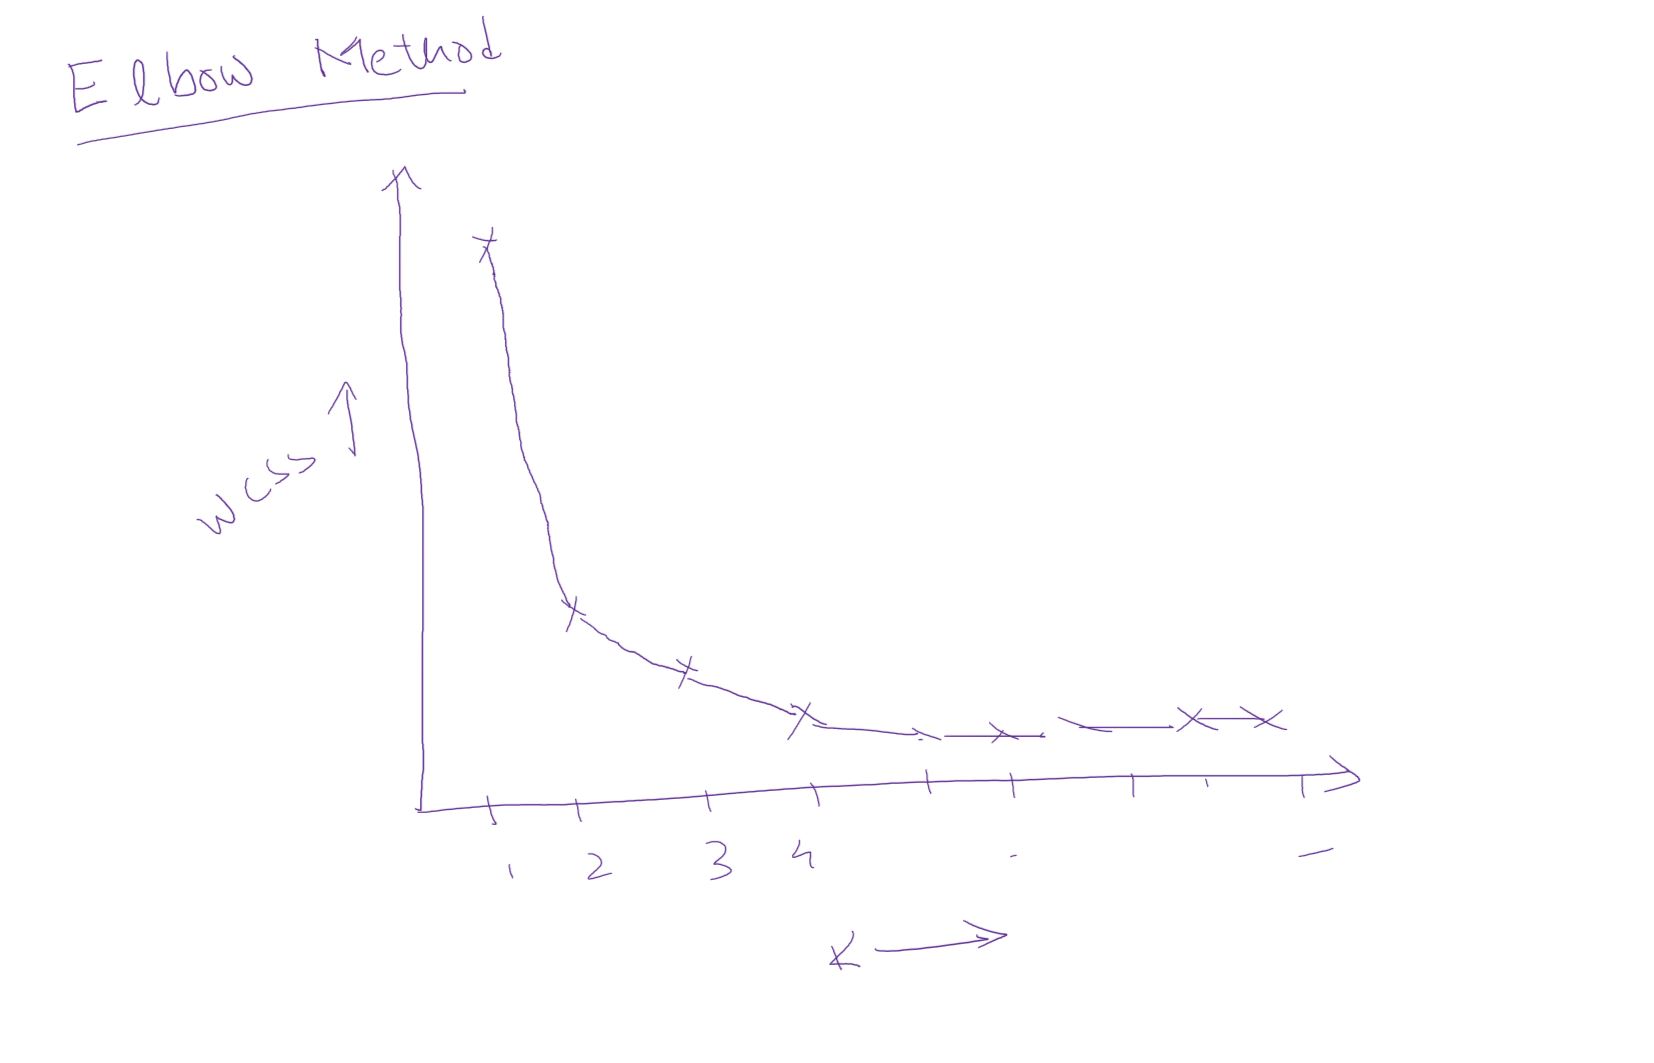 Elbow Method
WCSS
1 2 3 4
K